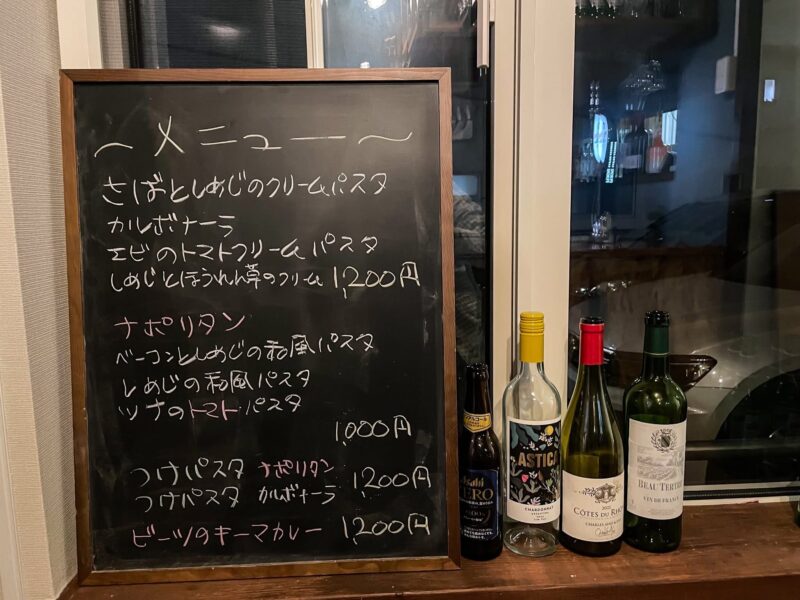 ～メニュー～
さばとしめじのクリームパスタ
カルボナーラ
エビのトマトクリームパスタ
しめじとほうれん草のクリーム 1,200円
ナポリタン
ベーコンとしめじの和風パスタ
しめじの和風パスタ
ツナのトマトパスタ
1,000円
つけパスタ ナポリタン
つけパスタ カルボナーラ 1,200円
ビーツのキーマカレー 1,200円
Asahi
ZERO
ASTICA
CHARDONNAY
2022
CÔTES DU RHÔ
BEAU TERTRE
VIN DE FRANCE